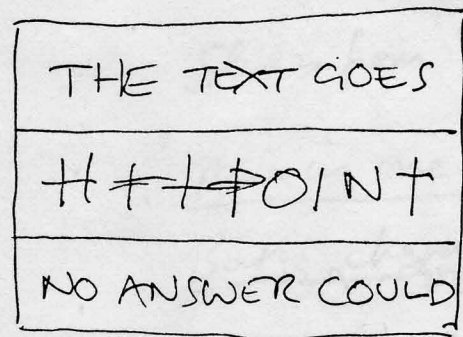 THE TEXT GOES
POINT
NO ANSWER COULD